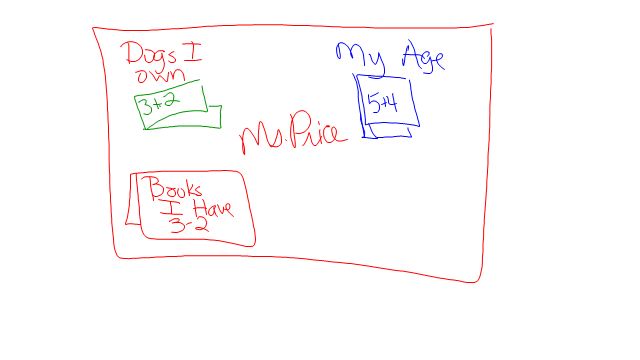 Dogs I
own
3+2
My Age
5+4
Ms. Price
Books
I Have
3-2